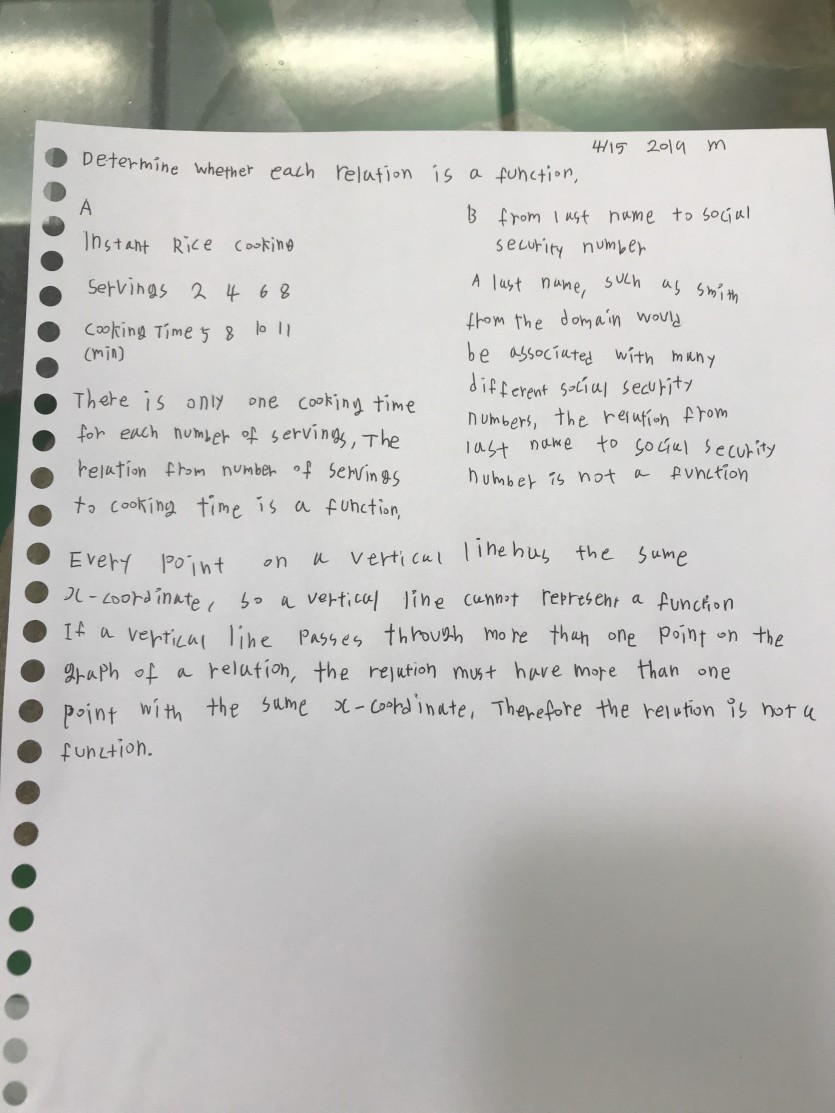 4/15 2019 m
Determine whether each relation is a function,
A
Instant Rice cooking
Servings 2 4 6 8
Cooking Time 5 8 10 11
(min)
There is only one cooking time
for each number of servings, The
relation from number of servings
to cooking time is a function,
B from last name to social
security number
A last name, such as smith
from the domain would
be associated with many
different social security
numbers, the relation from
last name to social security
number is not a function
Every point on a vertical line has the same
x-coordinate, so a vertical line cannot represent a function
If a vertical line passes through more than one point on the
graph of a relation, the relation must have more than one
point with the same x-coordinate, Therefore the relation is not a
function.